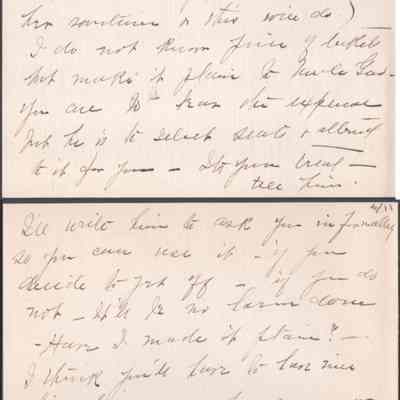 her sometimes or this will do)
I do not know price of tickets
but make it plain to Uncle Gus-
you are to bear the expense
but he is to select seats & attend
to it for you - It's your treat -
tell him.
4/11
I'll write him to ask you informally
so you can use it - if you
decide to get off - if you do
not - It'll be no harm done
- Have I made it plain? -
I think you'll have to have nice